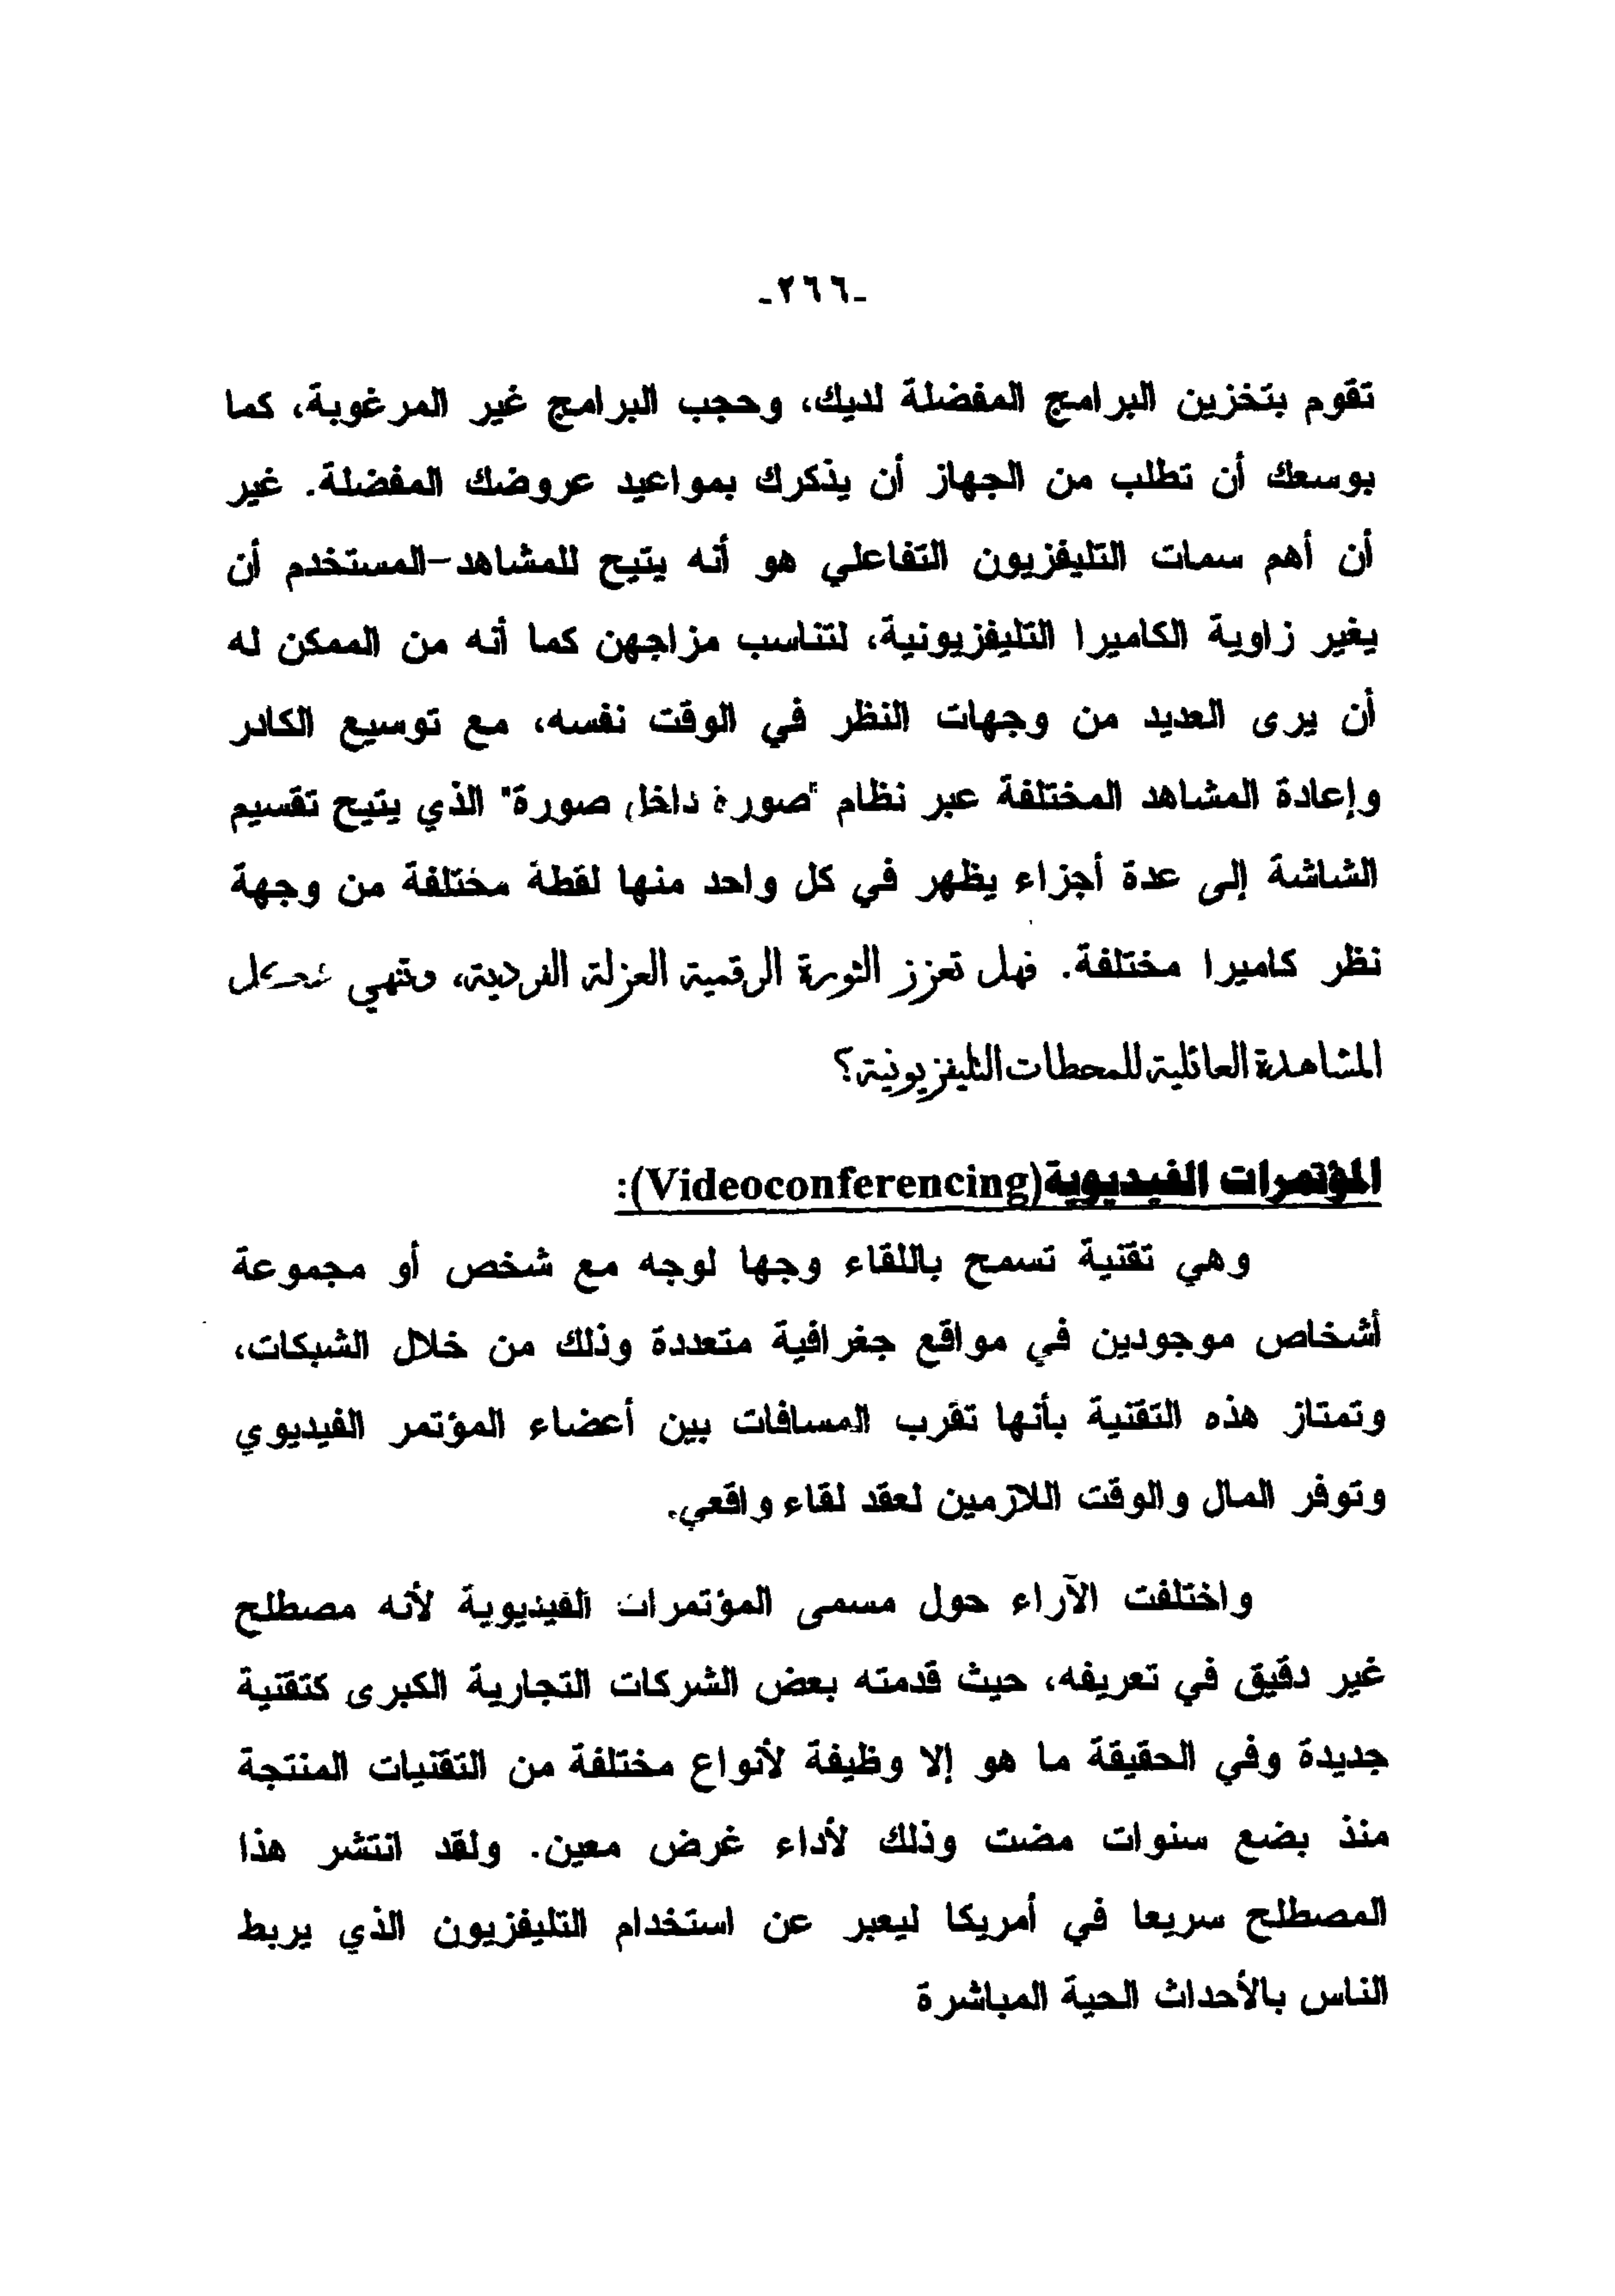 -٢٦٦-
تقوم بتخزين البرامج المفضلة لديك، وحجب البرامج غير المرغوبة، كما
بوسعك أن تطلب من الجهاز أن يذكرك بمواعيد عروضك المفضلة. غير
أن أهم سمات التليفزيون التفاعلي هو أنه يتيح للمشاهد-المستخدم أن
يغير زاوية الكاميرا التليفزيونية، لتناسب مزاجهن كما أنه من الممكن له
أن يرى العديد من وجهات النظر في الوقت نفسه، مع توسيع الكادر
وإعادة المشاهد المختلفة عبر نظام "صورة داخل صورة" الذي يتيح تقسيم
الشاشة إلى عدة أجزاء يظهر في كل واحد منها لقطة مختلفة من وجهة
نظر كاميرا مختلفة. فهل تعزز الثورة الرقمية العزلة الفردية، وتنهي
المشاهدة العائلية للمحطات التليفزيونية؟
المؤتمرات الفيديوية(Videoconferencing):
وهي تقنية تسمح باللقاء وجها لوجه مع شخص أو مجموعة
أشخاص موجودين في مواقع جغرافية متعددة وذلك من خلال الشبكات،
وتمتاز هذه التقنية بأنها تقرب المسافات بين أعضاء المؤتمر الفيديوي
وتوفر المال والوقت اللازمين لعقد لقاء واقعي.
واختلفت الآراء حول مسمى المؤتمرات الفيديوية لأنه مصطلح
غير دقيق في تعريفه، حيث قدمته بعض الشركات التجارية الكبرى كتقنية
جديدة وفي الحقيقة ما هو إلا وظيفة لأنواع مختلفة من التقنيات المنتجة
منذ بضع سنوات مضت وذلك لأداء غرض معين. ولقد انتشر هذا
المصطلح سريعا في أمريكا ليعبر عن استخدام التليفزيون الذي يربط
الناس بالأحداث الحية المباشرة